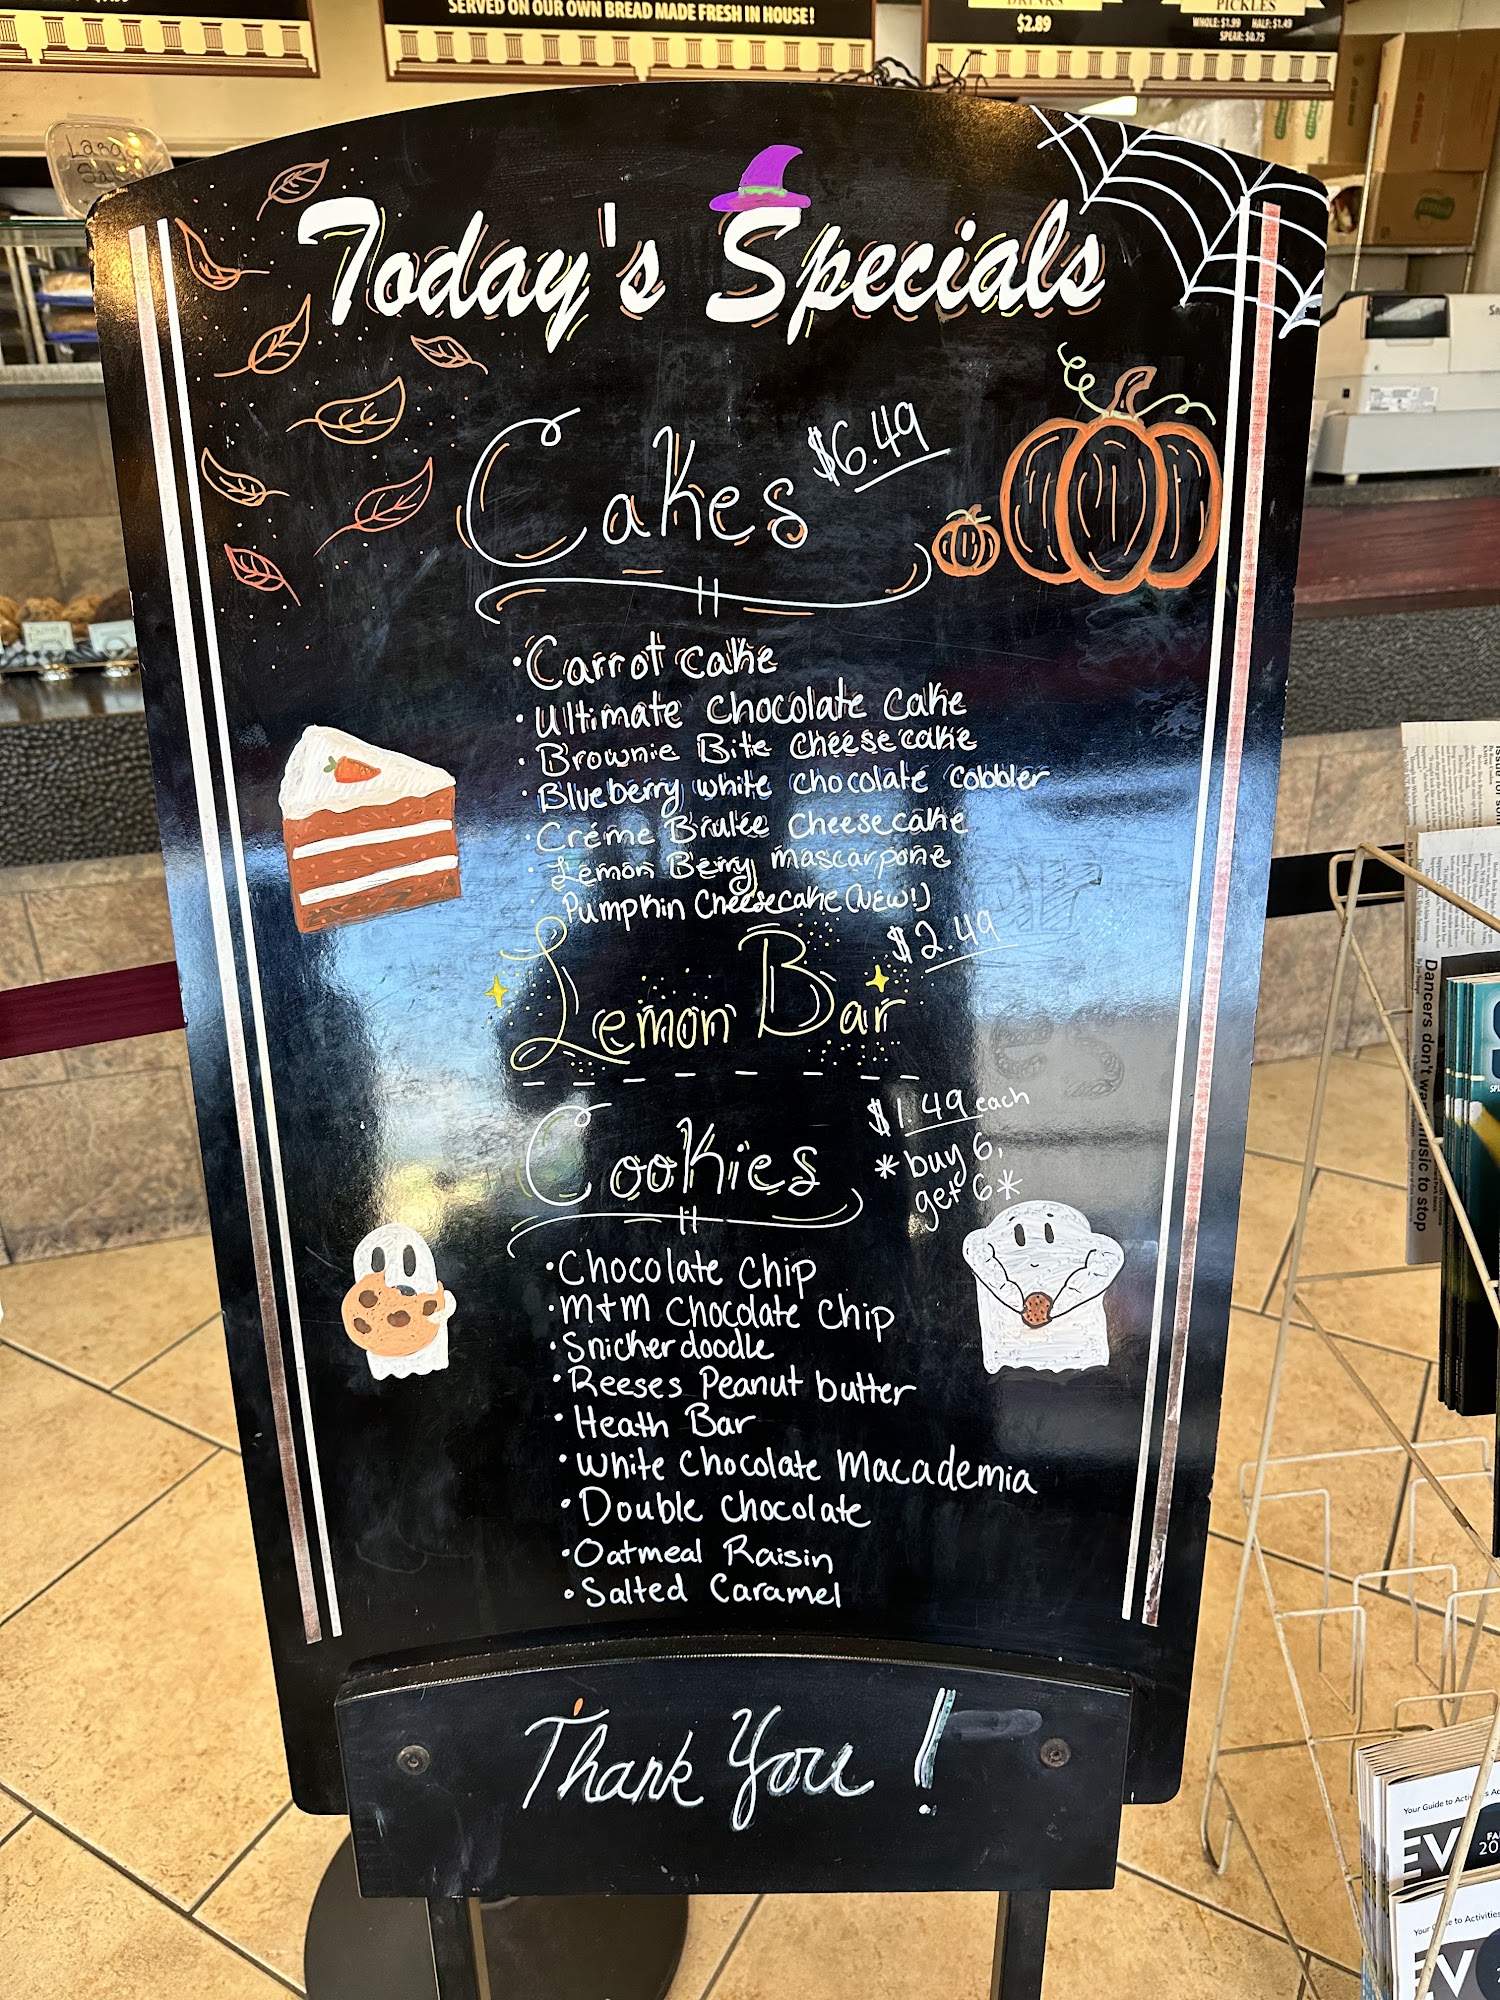 SERVED ON OUR OWN BREAD MADE FRESH IN HOUSE!
DRINKS
$2.89
PICKLES
WHOLE: $1.99 HALF: $1.49
SPEAR: $0.75
Large
Today's Specials
Cakes $6.49
•Carrot cake
•Ultimate Chocolate Cake
•Brownie Bite Cheesecake
•Blueberry white chocolate cobbler
•Créme Brulée Cheesecake
•Lemon Berry mascarpone
Pumpkin Cheesecake (NEW!)
Lemon Bar $2.49
Cookies $1.49 each
*buy 6,
get 6*
•Chocolate Chip
•M+M Chocolate Chip
•Snickerdoodle
•Reeses Peanut butter
•Heath Bar
•White Chocolate Macademia
•Double Chocolate
•Oatmeal Raisin
•Salted Caramel
Thank You!
Dancers don't
music to stop
Your Guide to
EV
Your
to Activities
EV